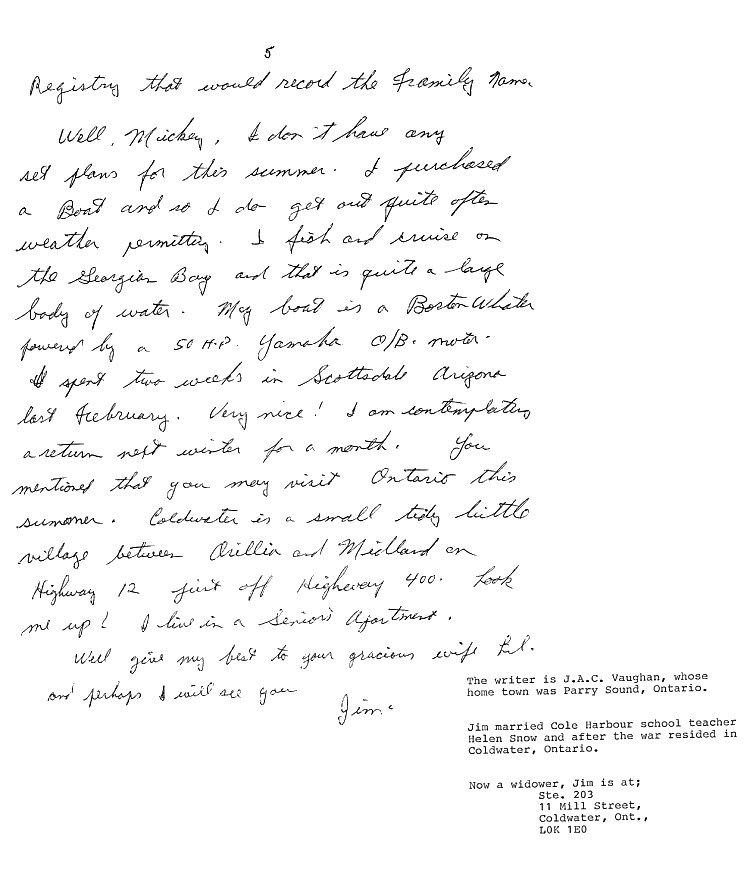 5
Registry that would record the Framily Name.
Well, Mickey, I don't have any
set plans for this summer. I purchased
a Boat and so I do get out quite often
weather permitting. I fish and cruise on
the Georgian Bay and that is quite a large
body of water. My boat is a Boston Whaler
powered by a 50 H.P. Yamaha O/B. motor.
I spent two weeks in Scottsdale Arizona
last February. Very nice! I am contemplating
a return next winter for a month. You
mentioned that you may visit Ontario this
summer. Coldwater is a small tidy little
village between Orillia and Midland on
Highway 12 just off Highway 400. Look
me up! I live in a Seniors Apartment.
Well give my best to your gracious wife
and perhaps I will see you
Jim.
The writer is J.A.C. Vaughan, whose
home town was Parry Sound, Ontario.
Jim married Cole Harbour school teacher
Helen Snow and after the war resided in
Coldwater, Ontario.
Now a widower, Jim is at;
Ste. 203
11 Mill Street,
Coldwater, Ont.,
L0K 1E0